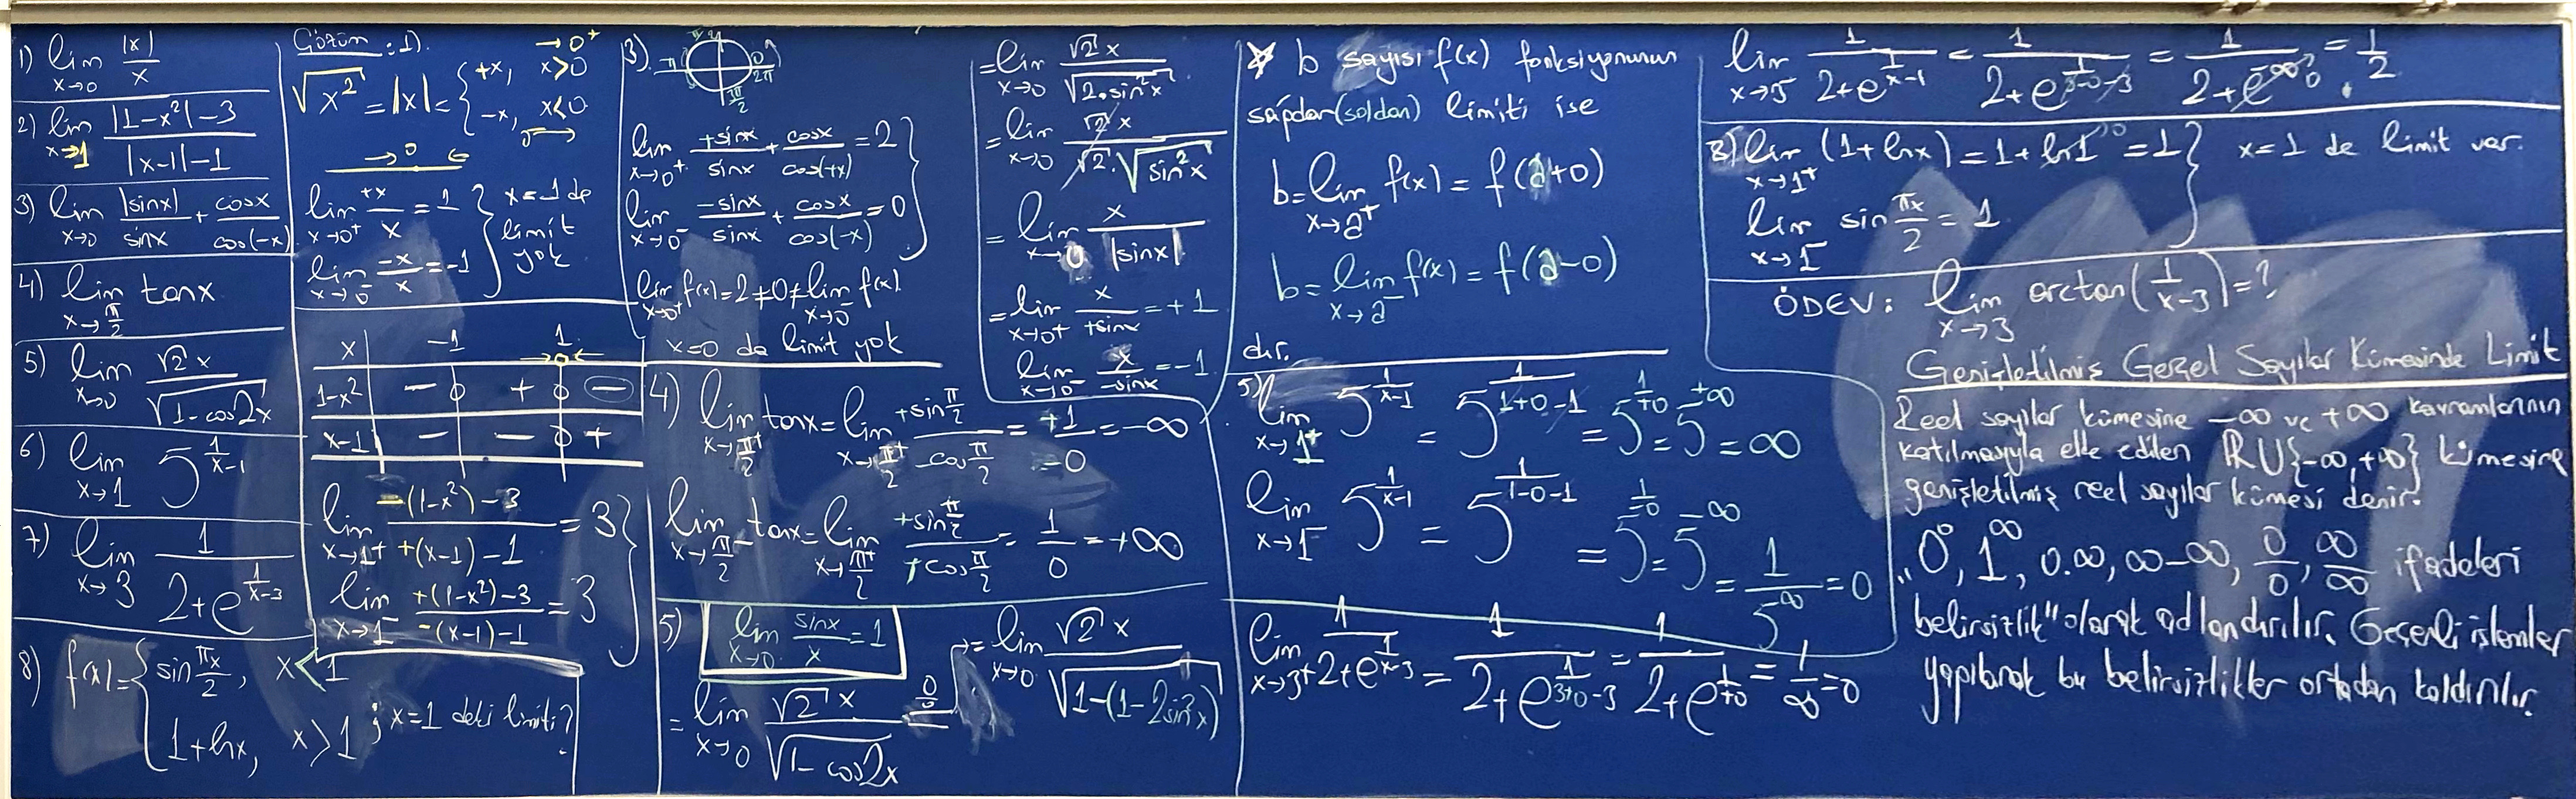 1) lim x→0 |x|/x
2) lim x→1 (|1-x²|-3)/(|x-1|-1)
3) lim x→0 |sinx|/sinx + cosx/cos(-x)
4) lim x→π/2 tanx
5) lim x→0 √2 x/√(1-cos2x)
6) lim x→1 5^(1/(x-1))
7) lim x→3 1/(2+e^(1/(x-3)))
8) f(x)={ sin πx/2, x<1
1+lnx, x>1 ; x=1 deki limiti?
Çözüm: 1).
→0⁺
√x² = |x| = { +x, x>0
-x, x<0
→0 ←
lim x→0⁺ +x/x = 1
lim x→0⁻ -x/x = -1
} x=-1 de
limit
yok
x -1 1
1-x² - 0 + 0 -
x-1 - - 0 +
lim x→1⁺ (-(1-x²)-3)/(+(x-1)-1) = 3
lim x→1⁻ (+(1-x²)-3)/(-(x-1)-1) = 3 }
3). π 0 2π π/2
lim x→0⁺ +sinx/sinx + cosx/cos(+x) = 2
lim x→0⁻ -sinx/sinx + cosx/cos(-x) = 0 }
lim x→0⁺ f(x)=2≠0≠lim x→0⁻ f(x).
x=0 da limit yok
4) lim x→π/2⁺ tanx = lim x→π/2⁺ +sin π/2 / -cos π/2 = +1/-0 = -∞
lim x→π/2⁻ tanx = lim x→π/2⁺ +sin π/2 / +cos π/2 = 1/0 = +∞
5) lim x→0 sinx/x = 1
= lim x→0 √2 x/√(1-cos2x) 0/0
= lim x→0 √2 x/√(1-(1-2sin²x))
= lim x→0 √2 x/√(2.sin²x)
= lim x→0 √2 x/(√2.√(sin²x))
= lim x→0 x/|sinx|
= lim x→0⁺ x/+sinx = +1
lim x→0⁻ x/-sinx = -1
☆ b sayısı f(x) fonksiyonunun
sağdan(soldan) limiti ise
b=lim x→a⁺ f(x) = f(a+0)
b=lim x→a⁻ f(x) = f(a-0)
dır.
5) lim x→1⁺ 5^(1/(x-1)) = 5^(1/(1+0-1)) = 5^(1/+0) = 5^(+∞) = ∞
lim x→1⁻ 5^(1/(x-1)) = 5^(1/(1-0-1)) = 5^(1/-0) = 5^(-∞) = 1/5^∞ = 0
lim x→3⁺ 1/(2+e^(1/(x-3))) = 1/(2+e^(1/(3+0-3))) = 1/(2+e^(1/+0)) = 1/∞ = 0
lim x→3⁻ 1/(2+e^(1/(x-1))) = 1/(2+e^(1/(3-0-3))) = 1/(2+e^(-∞)) 0 = 1/2.
8) lim x→1⁺ (1+lnx) = 1+ln1 0 = 1 } x=1 de limit var.
lim x→1⁻ sin πx/2 = 1
ÖDEV: lim x→3 arctan(1/(x-3))=?
Genişletilmiş Gerçel Sayılar Kümesinde Limit
Reel sayılar kümesine -∞ ve +∞ kavramlarının
katılmasıyla elde edilen ℝU{-∞,+∞} kümesine
genişletilmiş reel sayılar kümesi denir.
"0⁰, 1^∞, 0.∞, ∞-∞, 0/0, ∞/∞ ifadeleri
belirsizlik" olarak adlandırılır. Geçerli işlemler
yapılarak bu belirsizlikler ortadan kaldırılır.